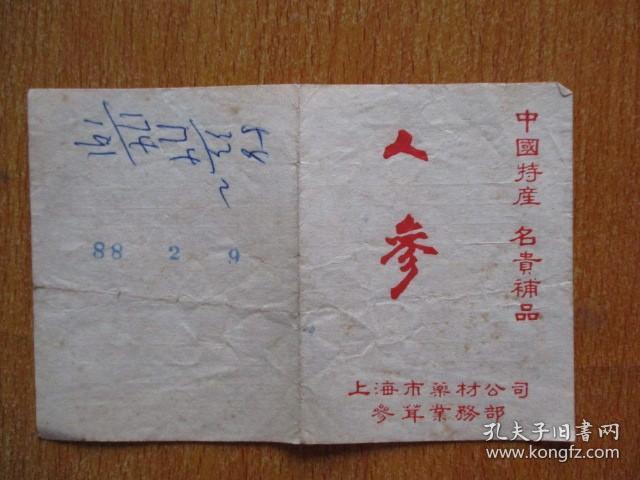 中國特産 名貴補品
人參
上海市藥材公司
參茸業務部
88 2 9
孔夫子旧书网
www.kongfz.com